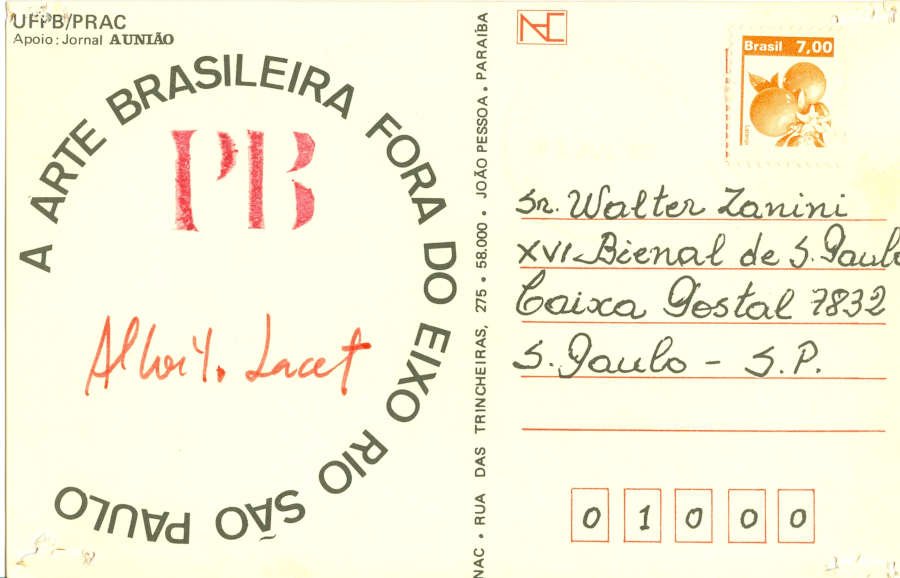 UFPB/PRAC
Apoio: Jornal A UNIÃO
A ARTE BRASILEIRA FORA DO EIXO RIO SÃO PAULO
PB
Lacet
NAC • RUA DAS TRINCHEIRAS, 275 • 58.000 • JOÃO PESSOA • PARAÍBA
NAC
Brasil 7,00
Sr. Walter Zanini
XVI-Bienal de S. Paulo
Caixa Postal 7832
S. Paulo - S.P.
0 1 0 0 0